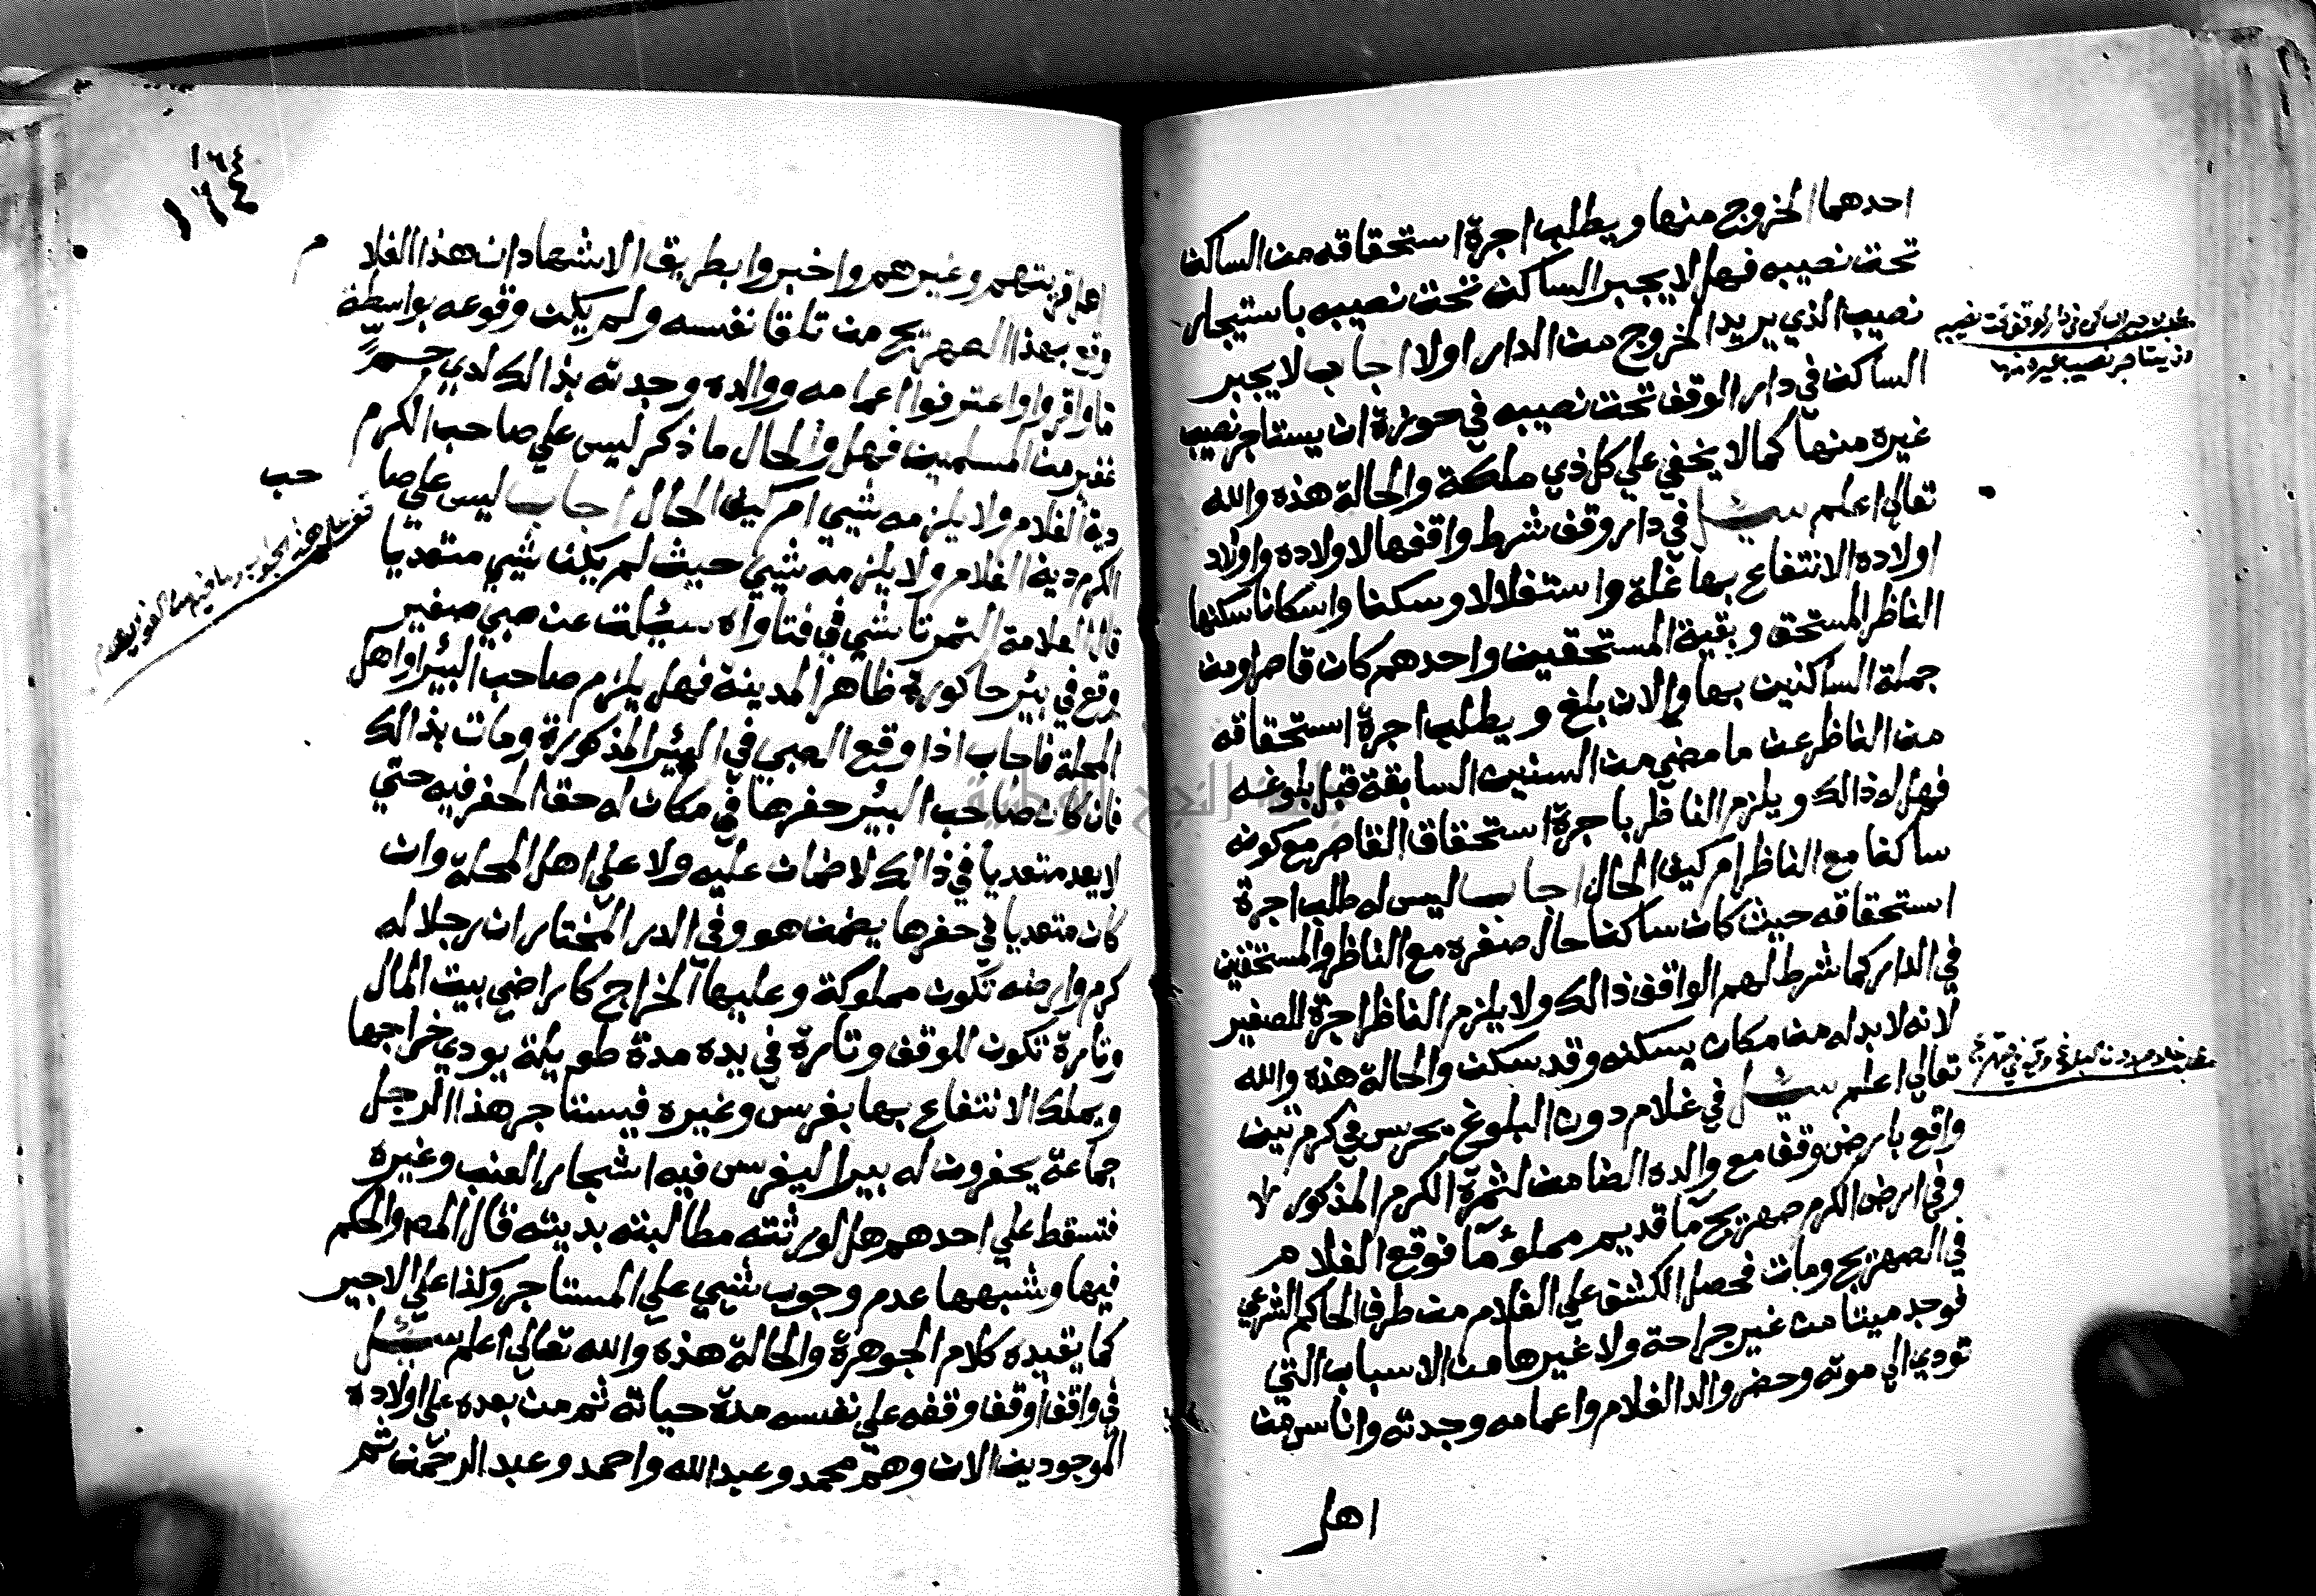 احدهما الخروج منها ويطلب اجرة استحقاقه من الساكن
تحت نصيبه فهل لا يجبر الساكن تحت نصيبه باستيجار
نصيب الذي يريد الخروج من الدار اولا اجاب لا يجبر
الساكن في دار الوقف تحت نصيبه في حوزة ان يستاجر نصيب
غيره منها كما لا يخفي علي كل ذي ملكة والحالة هذه والله
تعالي اعلم سئيل في دار وقف شرط واقفها لاولاده واولاد
اولاده الانتفاع بها غلة واستغلالا وسكنا واسكانا سكنها
الناظر المستحق وبقية المستحقين واحدهم كان قاصرا ومن
جملة الساكنين بها والان بلغ ويطلب اجرة استحقاقه
من الناظر عن ما مضي من السنين السابقة قبل بلوغه
فهل له ذالك ويلزم الناظر باجرة استحقاق القاصر مع كونه
ساكنا مع الناظر ام كيف الحال اجاب ليس له طلب اجرة
استحقاقه حيث كان ساكنا حال صغره مع الناظر والمستحقين
في الدار كما شرط لهم الواقف ذالك ولا يلزم الناظر اجرة للصغير
لانه لا بد له من مكان يسكنه وقد سكن والحالة هذه والله
تعالي اعلم سئيل في غلام دون البلوغ يحرس في كرم تين
واقع بارض وقف مع والده الضامن لثمرة الكرم المذكور
وفي ارض الكرم صهريج ما قديم مملوء ما فوقع الغلام
في الصهريج ومات فحصل الكشف علي الغلام من طرف الحاكم الشرعي
فوجد ميتا من غير جراحة ولا غيرها من الاسباب التي
تودي الي موته وحضر والد الغلام واعمامه وجدته واناس من
اهل
١٦٤
١٦٤
اهل قريتهم وغيرهم واخبروا بطريق الاشهاد ان هذا الغلام
وقع بهذا الصهريج من تلقا نفسه ولم يكن وقوعه بواسطة
فاواقروا واعترفوا اعمامه ووالده وجدته بذالك لدي جم
غفير من المسلمين فهل والحال ما ذكر ليس علي صاحب الكرم
دية الغلام ولا يلزمه شيي ام كيف الحال اجاب ليس علي صاحب
الكرم دية الغلام ولا يلزمه شيي حيث لم يكن شيي متعديا
قال العلامة التمرتاشي في فتاواه سيئلت عن صبي صغير
وقع في بئر حاكورة ظاهر المدينة فهل يلزم صاحب البئر او اهل
المحلة فاجاب اذا وقع الصبي في البئر المذكورة ومات بذالك
فان كان صاحب البئر حفرها في مكان له حق الحفر فيه حتي
لا يعد متعديا في ذالك لا ضمان عليه ولا علي اهل المحلة وان
كان متعديا في حفرها يضمن هو وفي الدر المختار ان رجلا له
كرم وارضه تكون مملوكة وعليها الخراج كاراضي بيت المال
وتارة تكون للوقف وتارة في يده مدة طويلة يودي خراجها
ويملك الانتفاع بها بغرس وغيره فيستاجر هذا الرجل
جماعة يحفرون له بيرا ليغرس فيه اشجار العنب وغيره
فتسقط علي احدهم هل لورثته مطالبته بديته قال المص والحكم
فيها وشبهها عدم وجوب شيي علي المستاجر وكذا علي الاجير
كما يفيده كلام الجوهرة والحالة هذه والله تعالي اعلم سئيل
في واقف اوقف وقفه علي نفسه مدة حياته ثم من بعده علي اولاده
الموجودين الان وهم محمد وعبد الله واحمد وعبد الرحمن ثم